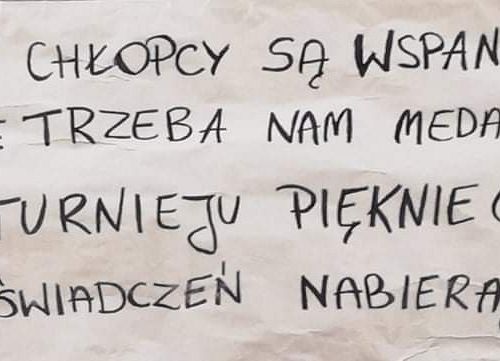 CHŁOPCY SĄ WSPAN
E TRZEBA NAM MEDA
TURNIEJU PIĘKNIE
ŚWIADCZEŃ NABIERA